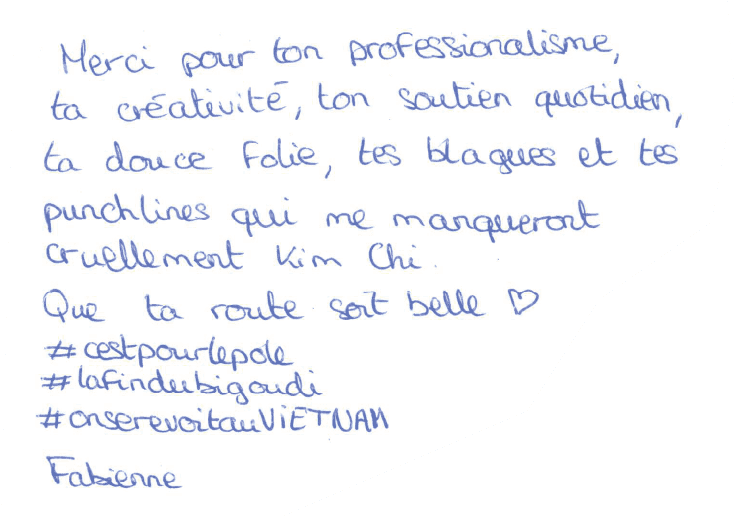 Merci pour ton professionalisme,
ta créativité, ton soutien quotidien,
ta douce folie, tes blagues et tes
punchlines qui me manqueront
cruellement Kim Chi.
Que ta route soit belle ♡
#cestpourlepole
#lafindubigoudi
#onserevoitauViETNAM
Fabienne